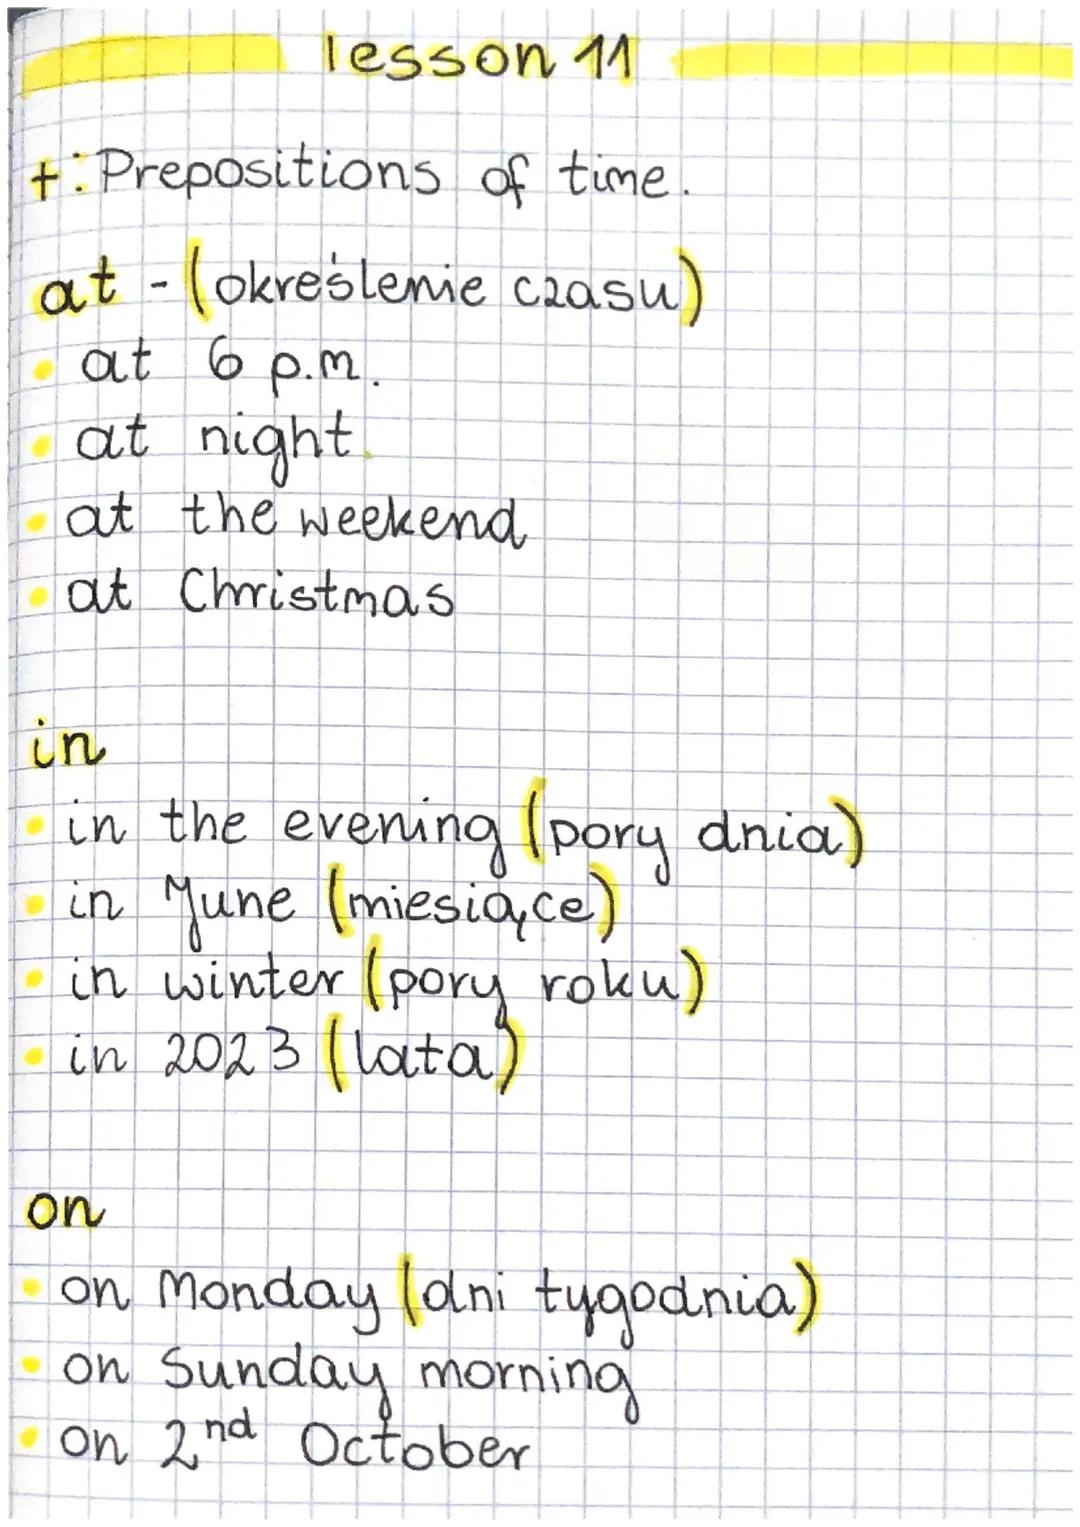 lesson 11
t: Prepositions of time.
at - (określenie czasu)
• at 6 p.m.
• at night.
• at the weekend
• at Christmas
in
• in the evening (pory dnia)
• in June (miesiące)
• in winter (pory roku)
• in 2023 (lata)
on
• on Monday (dni tygodnia)
• on Sunday morning
• on 2nd October